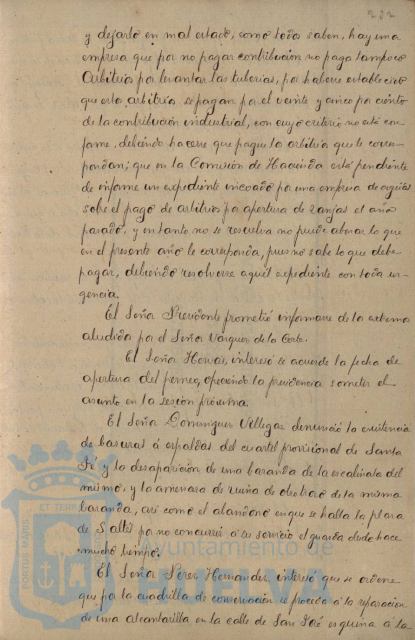 232
y dejarlo en mal estado, como todos saben, hay una
empresa que por no pagar contribución no paga tampoco
Arbitrios por levantar las tuberías, por haberse establecido
que esta arbitrio se pagan por el veinte y cinco por ciento
de la contribución industrial, con cuyo criterio no está con-
forme, debiendo hacerse que pague los arbitrios que le corres-
pondan; que en la Comisión de Hacienda está pendiente
de informe un expediente incoado por una empresa de aguas
sobre el pago de arbitrios por apertura de zanjas el año
pasado, y en tanto no se resuelva no puede abonar lo que
en el presente año le corresponda, pues no sabe lo que debe
pagar, debiendo resolverse aquel expediente con toda ur-
gencia.
El Señor Presidente prometió informarse de los extremos
aludidos por el Señor Vázquez de la Corte.
El Señor interesó se acuerde la fecha de
apertura del ofreciendo la presidencia someter el
asunto en la sesión próxima.
El Señor Domínguez Villegas denunció la existencia
de basuras á espaldas del cuartel provisional de Santa
Fé y la desaparición de una baranda de la escalinata del
mismo, y la amenaza de ruina de de la misma
baranda, así como el abandono en que se halla la plaza
de Saltés por no concurrir á su servicio el guarda desde hace
mucho tiempo.
El Señor Pérez Hernández, interesó que se ordene
que por la cuadrilla de conservación se proceda á la reparación
de una alcantarilla en la calle de San José esquina á la
PORTUS MARIS ET TERRAE
Ayuntamiento de
HUELVA